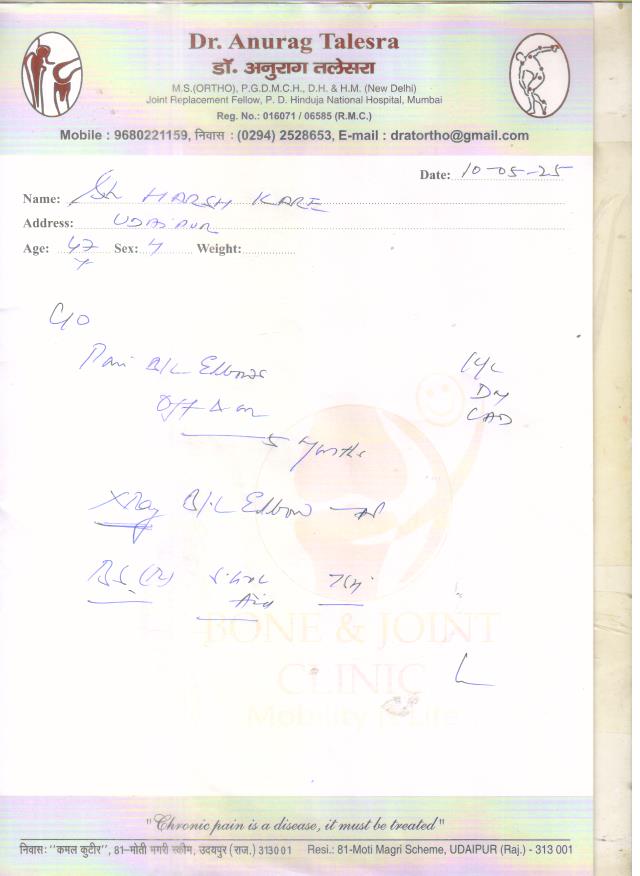 Dr. Anurag Talesra
डॉ. अनुराग तलेसरा
M.S.(ORTHO), P.G.D.M.C.H., D.H. & H.M. (New Delhi)
Joint Replacement Fellow, P. D. Hinduja National Hospital, Mumbai
Reg. No.: 016071 / 06585 (R.M.C.)
Mobile : 9680221159, निवास : (0294) 2528653, E-mail : dratortho@gmail.com
Date: 10-05-25
Name: Sh HARSH KARE
Address: UDAIPUR
Age: 47 Sex: Weight:
C/O
Pain B/L Elbows
5 months
DM
CAD
XRay B/L Elbow - AP
BONE & JOINT
CLINIC
Mobility is Life
"Chronic pain is a disease, it must be treated"
निवास: "कमल कुटीर", 81-मोती मगरी स्कीम, उदयपुर (राज.) 313001 Resi.: 81-Moti Magri Scheme, UDAIPUR (Raj.) - 313 001